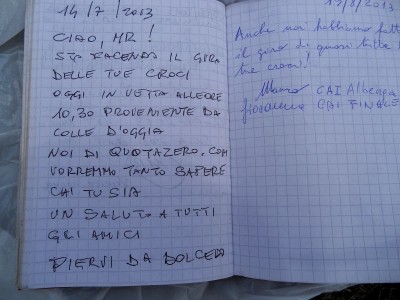 14/7/2013
CIAO, MR !
STO FACENDO IL GIRO
DELLE TUE CROCI
OGGI IN VETTA ALLE ORE
10,30 PROVENIENTE DA
COLLE D'OGGIA
NOI DI QUOTAZERO.COM
VORREMMO TANTO SAPERE
CHI TU SIA
UN SALUTO A TUTTI
GLI AMICI
PIERVI DA DOLCEDO
15/8/2013
Anche noi abbiamo fatto
il giro di quasi tutte le
tue croci!
CAI Albenga
CAI FINALE